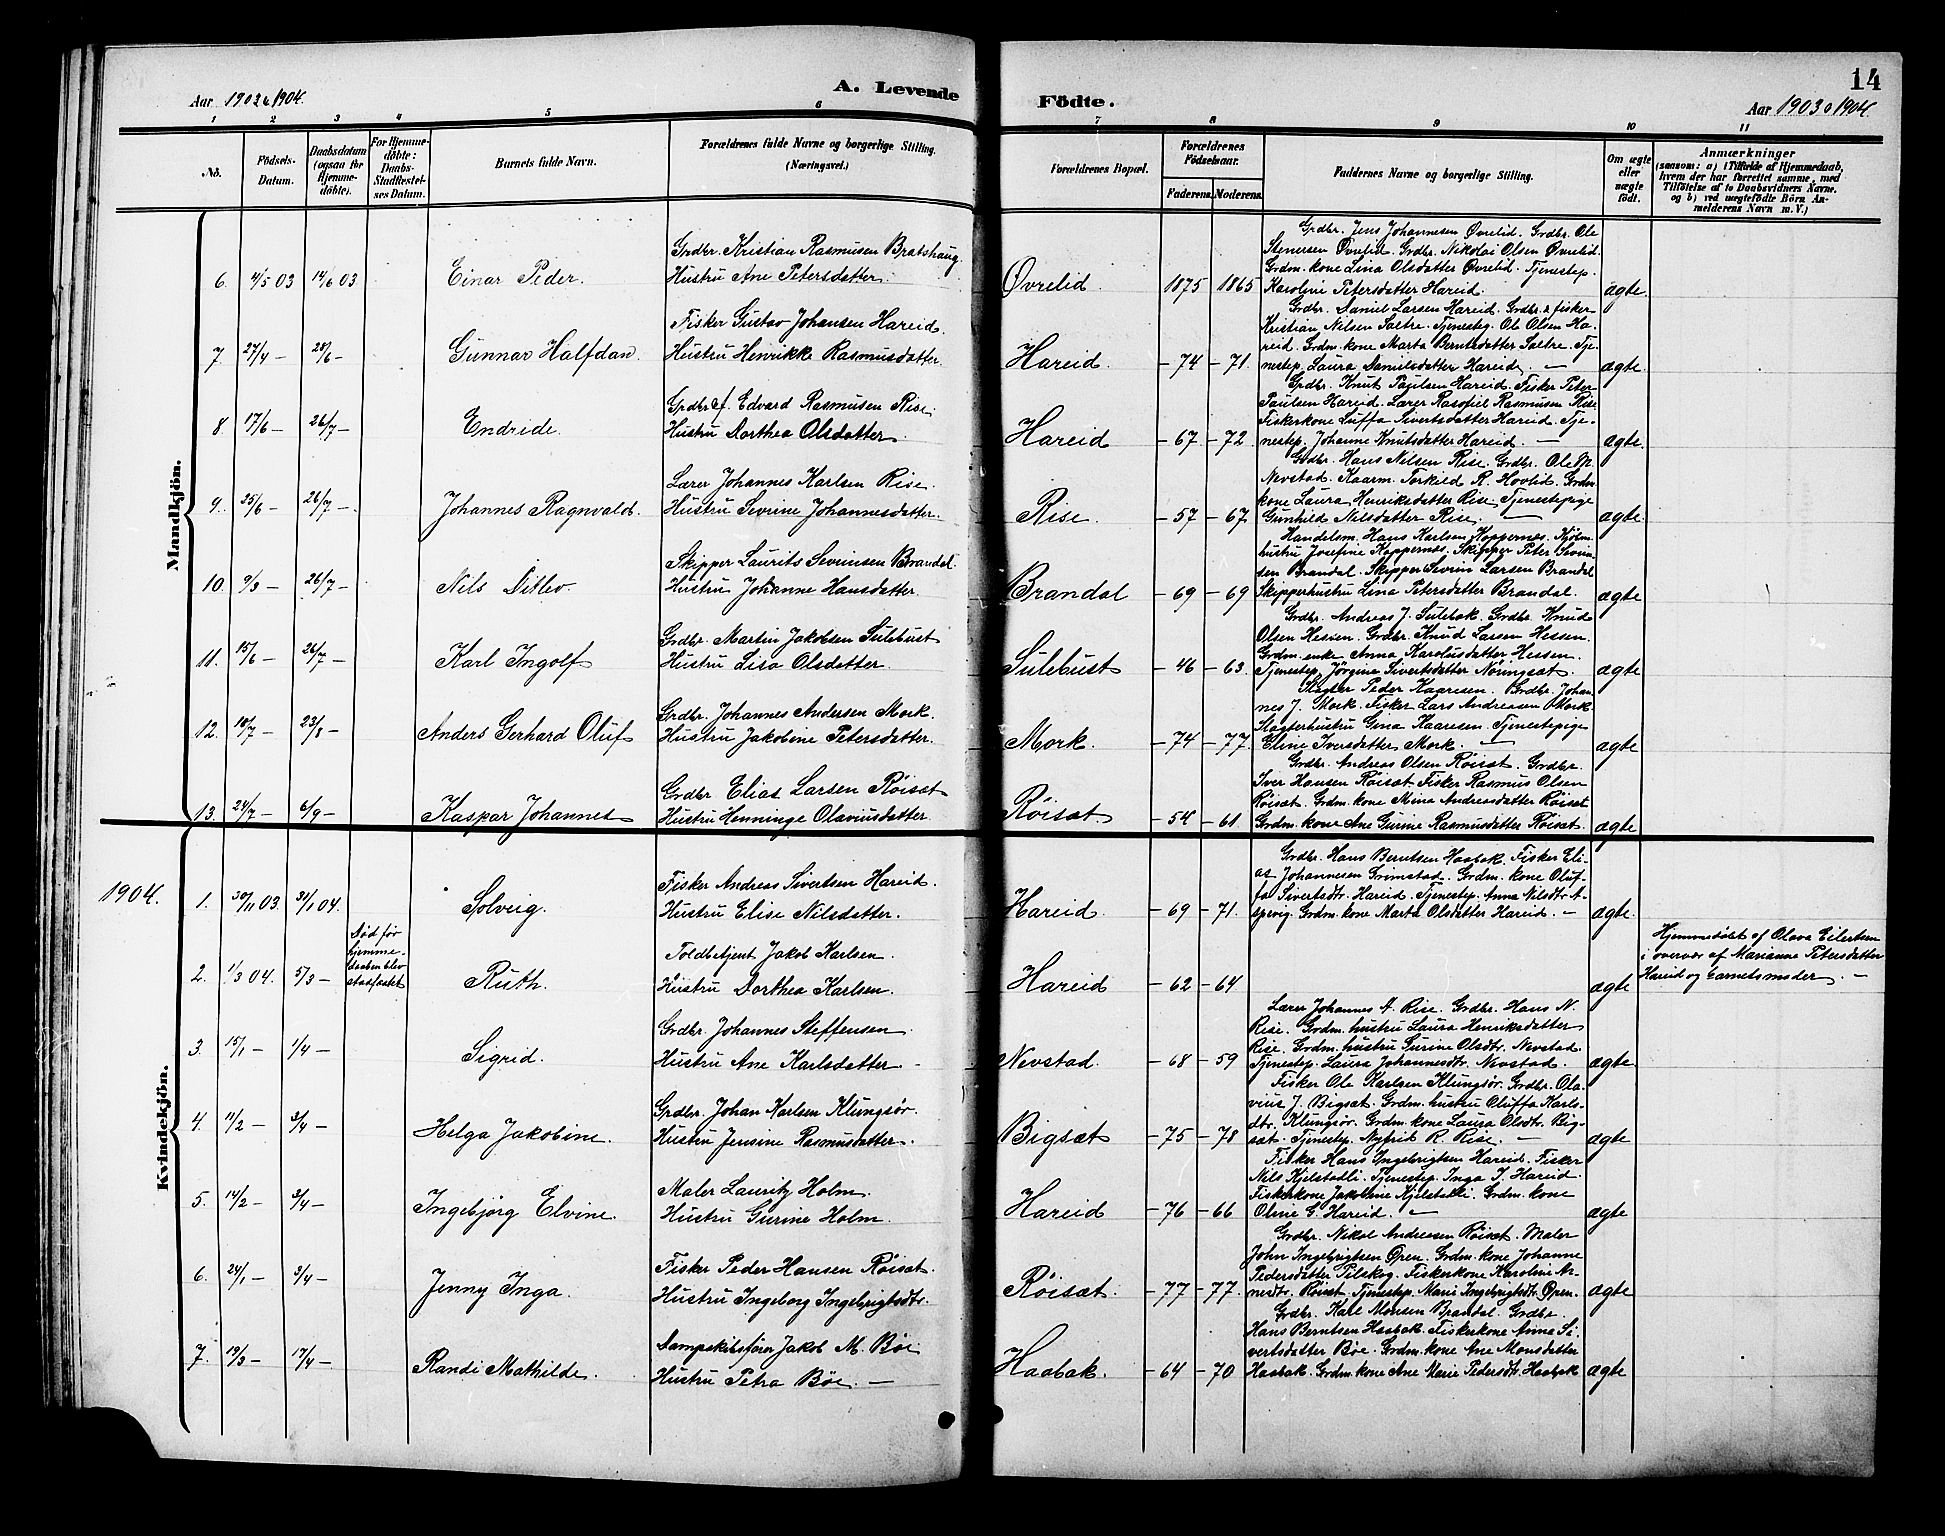 14
Aar 1903 & 1904.
A. Levende
Födte.
Aar 1903 o 1904.
1 2 3 4 5 6 7 8 9 10 11
No.
Födsels-
Datum.
Daabsdatum
(ogsaa for
Hjemme-
döbte).
For Hjemme-
döbte:
Daabs-
Stadfæstel-
ses Datum.
Barnets fulde Navn.
Forældrenes fulde Navne og borgerlige Stilling.
(Næringsvei.)
Forældrenes Bopæl.
Forældrenes
Födselsaar.
Faderens. Moderens.
Faddernes Navne og borgerlige Stilling.
Om ægte
eller
uægte
födt.
Anmærkninger
(saasom: a) i Tilfælde af Hjemmedaab,
hvem der har forrettet samme, med
Tilföielse af to Daabsvidners Navne.
og b) ved uægtefödte Börn An-
melderens Navn m. V.)
Mandkjön.
6. 4/5 03 14/6 03 Einar Peder.
Grdbr. Kristian Rasmusen Bratshaug
Hustru Ane Petersdatter.
Øvrelid. 1875 1865
Grdbr. Jens Johannesen Øvrelid. Grdbr. Ole
Stenersen Øvrelid. Grdbr. Nikolai Olsen Øvrelid.
Grdm. kone Lina Olsdatter Øvrelid. Tjenestep.
Karoline Petersdatter Hareid.
ægte.
7. 27/4 – 28/6 – Gunnar Halfdan.
Fisker Gustav Johansen Hareid.
Hustru Henrikke Rasmusdatter.
Hareid. – 74 – 71.
Grdbr. Daniel Larsen Hareid. Grdbr. & fisker
Kristian Nilsen Saltre. Tjenesteg. Ole Olsen Ha-
reid. Grdm. kone Marta Berntsdatter Saltre. Tje-
nestep. Laura Danielsdatter Hareid. –
ægte.
8. 17/6 – 26/7 – Endride.
Grdbr. f. Edvard Rasmusen Rise.
Hustru Dorthea Olsdatter.
Hareid – 67 – 72
Grdbr. Knut Paulsen Hareid. Fisker Peter
Paulsen Hareid. Lærer Rasmus Rise.
Fiskerkone Luffa Sivertsdatter Hareid. Tje-
nestep. Johanne Knutsdatter Hareid. –
ægte.
9. 25/6 – 26/7 – Johannes Ragnvald.
Lærer Johannes Karlsen Rise.
Hustru Sevrine Johannesdatter.
Rise. – 57 – 67
Grdbr. Hans Nilsen Rise. Grdbr. Ole M.
Nevstad. Kaarm. Torkild R. Hovlid. Grdm
kone Laura Henriksdatter Rise. Tjenestepige
Gunhild Nilsdatter Rise. –
ægte.
10. 9/3 – 26/7 – Nils Ditlev.
Skipper Laurits Severinsen Brandal.
Hustru Johanne Hansdatter.
Brandal – 69 – 69
Handelsm. Hans Karlsen Koppernæs. Kjøbm.
hustru Josefine Koppernæs. Skipper Peter Severin-
sen Brandal. Skipper Severin Larsen Brandal
Skipperhustru Lina Petersdatter Brandal.
ægte
11. 15/6 – 26/7 – Karl Ingolf
Grdbr. Martin Jakobsen Sulebust
Hustru Lisa Olsdatter.
Sulebust – 46 – 63.
Grdbr. Andreas J. Sulebak. Grdbr. Knud
Olsen Hessen. Grdbr. Knud Larsen Hessen.
Grdm. enke Anna Karolusdatter Hessen.
Tjenestep. Jörgine Sivertsdatter Nöringset.
ægte
12. 18/7 – 23/8 – Anders Gerhard Oluf
Grdbr. Johannes Andersen Mork.
Hustru Jakobine Petersdatter.
Mork. – 74 – 77
Slagter Peder Kaaresen. Grdbr. Johan-
nes J. Mork. Fisker Lars Andreasen Mork
Slagterhustru Gina Kaaresen. Tjenestepige
Eline Iversdatter Mork. –
ægte
13. 24/7 – 6/9 – Kaspar Johannes
Grdbr. Elias Larsen Röiset
Hustru Henninge Olaviusdatter
Röiset. – 54 – 61
Grdbr. Andreas Olsen Röiset. Grdbr.
Iver Hansen Röiset. Fisker Rasmus Olsen
Röiset. Grdm. kone Mina Andreasdatter Röiset
Grdm. kone Ane Gurine Rasmusdatter Röiset.
ægte
1904.
Kvindekjön.
1. 30/11 03. 31/1 04. Solveig.
Fisker Andreas Sivertsen Hareid.
Hustru Elise Nilsdatter.
Hareid. – 69 – 71.
Grdbr. Hans Berntsen Haabak. Fisker Eli-
as Johannesen Grimstad. Grdm. kone Oluf-
fa Sivertsdtr. Hareid. Tjenestep. Anna Nilsdtr. A-
spevig. Grdm. kone Marta Olsdatter Hareid. –
ægte.
2. 1/3 04. 5/3 –
Död før
hjemme-
daaben blev
stadfæstet
Ruth.
Toldbetjent Jakob Karlsen.
Hustru Dorthea Karlsen.
Hareid – 62 – 64
ægte
Hjemmedøbt af Olava Eilertsen
i overvær af Marianne Petersdatter
Hareid og barnets moder. –
3. 15/1 – 1/4 – Sigrid.
Grdbr. Johannes Steffensen
Hustru Ane Karlsdatter
Nevstad. – 68 – 59
Lærer Johannes A. Rise. Grdbr. Hans N.
Rise. Grdm. hustru Laura Henriksdatter
Rise. Grdm. hustru Gurine Olsdtr. Nevstad
Tjenestep. Laura Johannesdtr. Nevstad.
ægte.
4. 11/2 – 3/4 – Helga Jakobine.
Grdbr. Johan Karlsen Klungsör.
Hustru Jensine Rasmusdatter.
Bigset – 75 – 78
Fisker Ole Karlsen Klungsör. Grdbr. Ola-
vius J. Bigset. Grdm. hustru Oluffa Karls-
dtr. Klungsör. Grdm. kone Laura Olsdtr. Big-
set. Tjenestep. Nyfrid R. Rise. –
ægte
5. 14/2 – 3/4 – Ingebjörg Elvine.
Maler Lauritz Holm.
Hustru Gurine Holm.
Hareid – 76 – 66
Fisker Hans Ingebrigtsen Hareid. Fisker
Nils Kjelstadli. Tjenestep. Inga J. Hareid.
Fiskerkone Jakobine Kjelstadli. Grdm. kone
Oline G. Hareid. –
ægte
6. 24/1 – 3/4 – Jenny Inga.
Fisker Peder Hansen Röiset.
Hustru Ingeborg Ingebrigtsdtr.
Röiset. – 77 – 77.
Grdbr. Nikol. Andreasen Röiset. Maler
John Ingebrigtsen Øren. Grdm. kone Johanne
Pedersdatter Pilskog. Fiskerkone Karoline Ar-
nesdtr. Röiset. Tjenestep. Marie Ingebrigtsdtr. Øren.
ægte
7. 19/3 – 17/4 – Randi Mathilde.
Dampskibsfører Jakob M. Böe
Hustru Petra Böe. –
Haabak. – 64 – 70
Grdbr. Karl Monsen Brandal. Grdbr.
Hans Berntsen Haabak. Fiskerkone Anna Si-
vertsdatter Böe. Grdm. kone Ane Monsdatter
Haabak. Grdm. kone Ane Marie Pedersdtr. Haabak
ægte